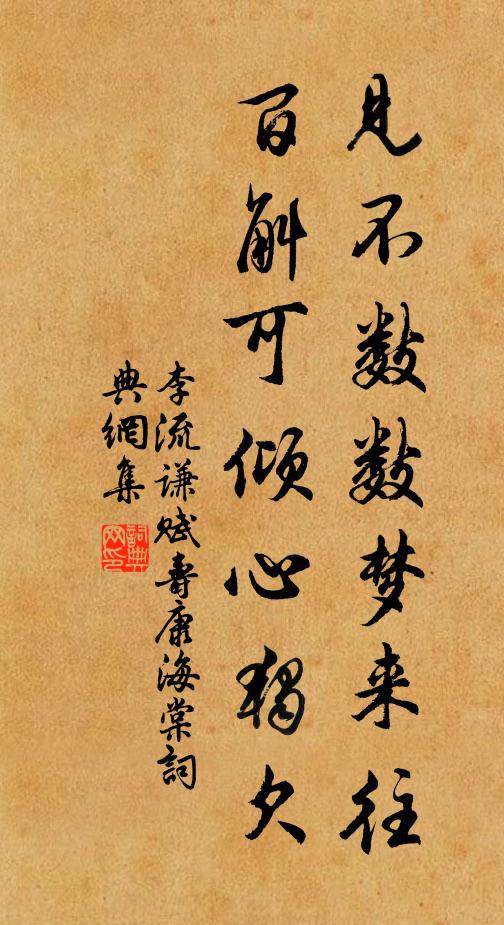 见不数数梦来往
百斛可倾心独欠
李流谦赋寿康海棠詞
典網集
詞典
网印